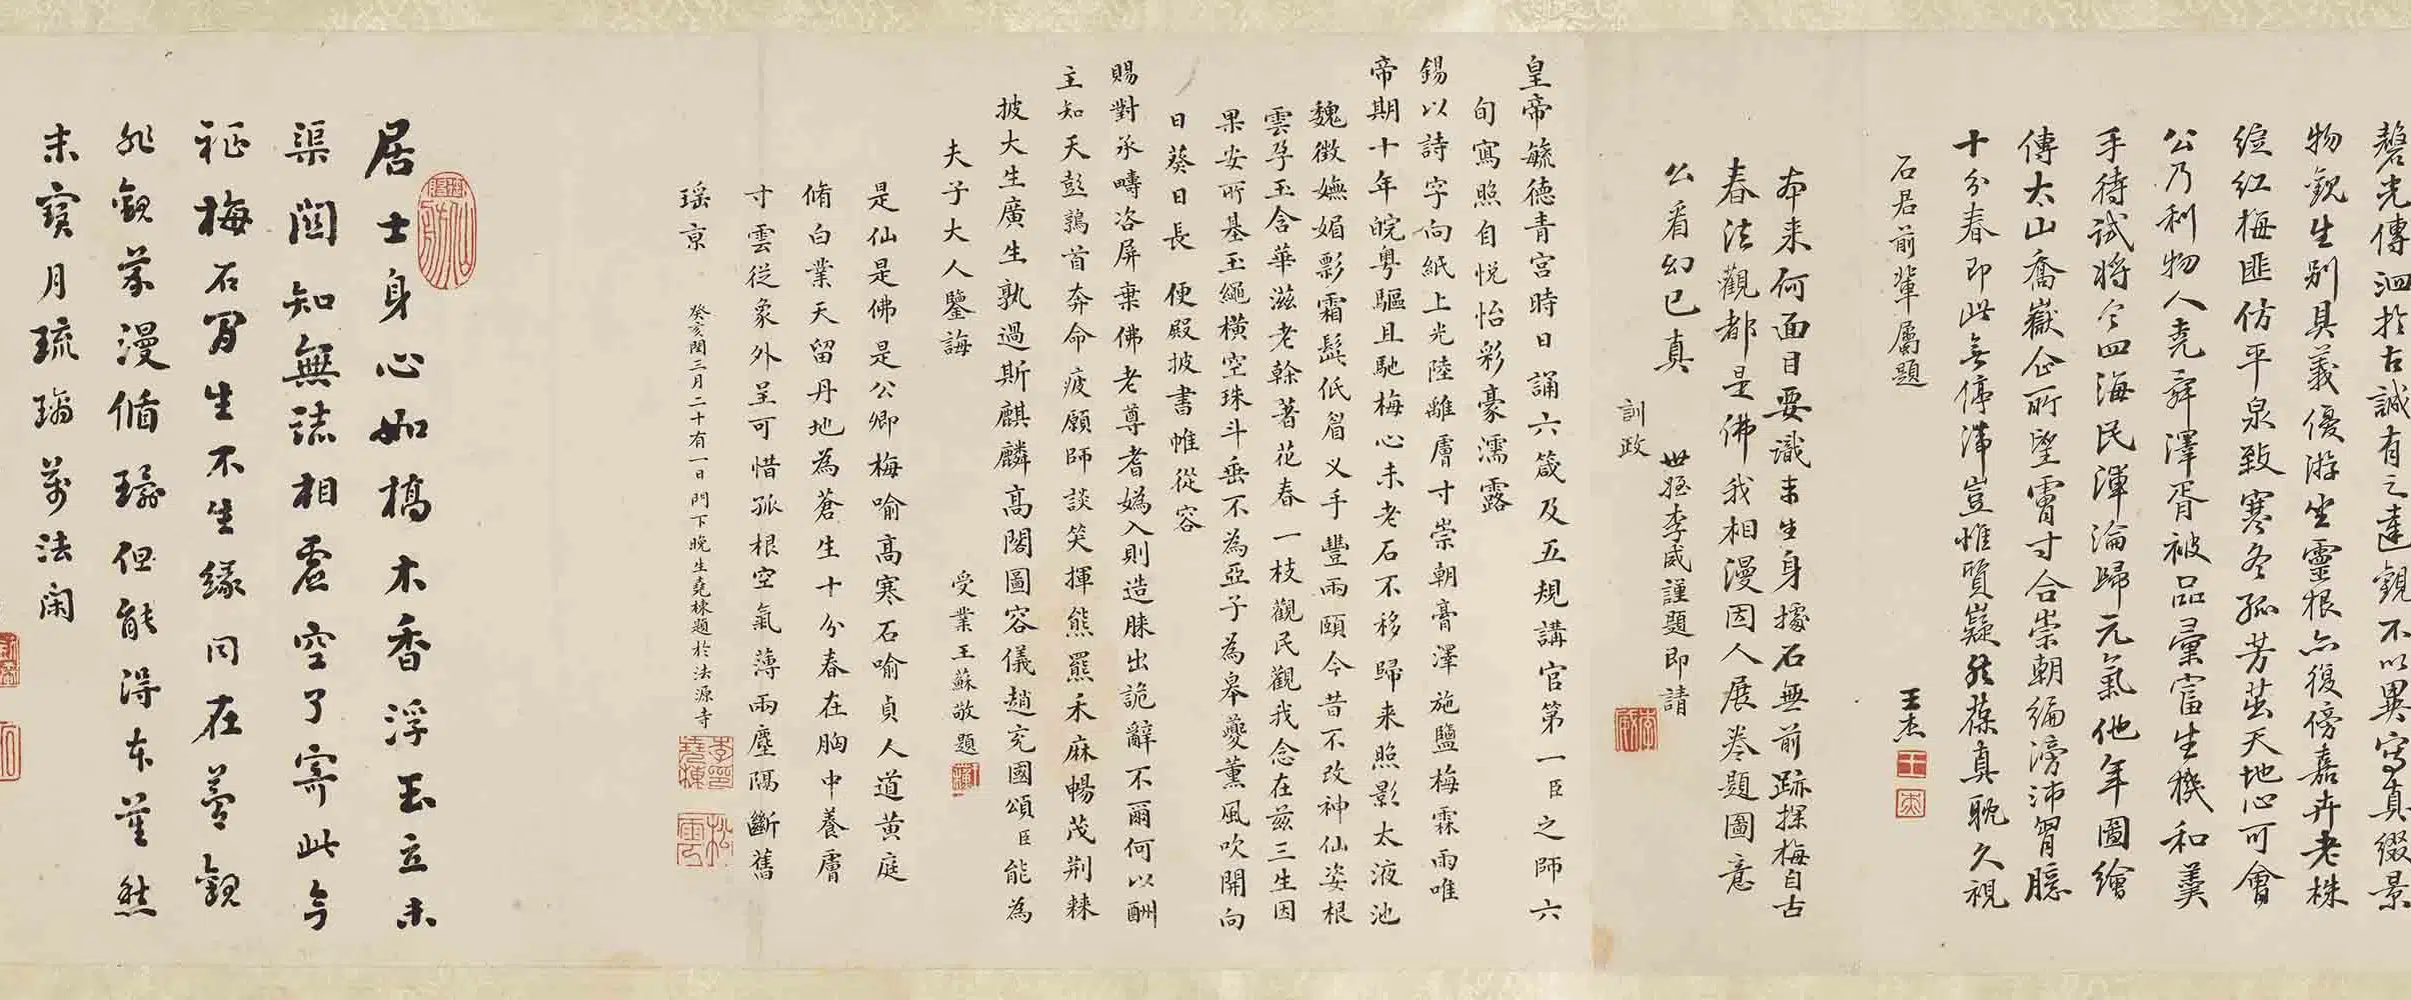 磬光傳泗於古誠有之達觀不以異寫真綴景
物觀生别具義優游坐靈根亦復傍嘉卉老株
絙紅梅匪仿平泉致寒冬孤芳茁天地心可會
公乃利物人堯舜澤胥被品彙富生機和羹
手待試將令四海民渾淪歸元氣他年圖繪
傳太山喬嶽企所望膚寸合崇朝編滂沛胷臆
十分春即此無停滯豈惟質嶷然葆真耽久視
石君前輩屬題
王杰
本来何面目要識未生身據石無前跡探梅自古
春法觀都是佛我相漫因人展卷題圖意
公看幻已真
世姪李威謹題即請
訓政
皇帝毓德青宮時日誦六箴及五規講官第一臣之師六
旬寫照自悦怡彩豪濡露
錫以詩字向紙上光陸離膚寸崇朝膏澤施鹽梅霖雨唯
帝期十年皖粤驅且馳梅心未老石不移歸来照影太液池
魏徵嫵媚髟霜髭低眉义手豐兩頤今昔不改神仙姿根
雲孕玉含華滋老榦著花春一枝觀民觀我念在兹三生因
果安所基玉繩橫空珠斗垂不為亞子為皋夔薰風吹開向
日葵日長便殿披書帷從容
賜對承疇咨屏棄佛老尊耆嬀入則造膝出詭辭不爾何以酬
主知天彭鶉首奔命疲願師談笑揮熊羆禾麻暢茂荆棘
披大生廣生孰過斯麒麟高閣圖容儀趙充國頌臣能為
夫子大人鑒誨
受業王蘇敬題
是仙是佛是公卿梅喻高寒石喻貞人道黄庭
脩白業天留丹地為蒼生十分春在胸中養膚
寸雲從象外呈可惜孤根空氣薄兩塵隔斷舊
瑶京
癸亥閏三月二十有一日門下晚生堯棟題於法源寺
居士身心如槁木香浮玉立未
渠闊知無誌相虛空了寄此今
祉梅石胃生不生緣同在菩觀
非觀蒙漫循瑑但能得本菫然
未寶月琉璃萬法閑